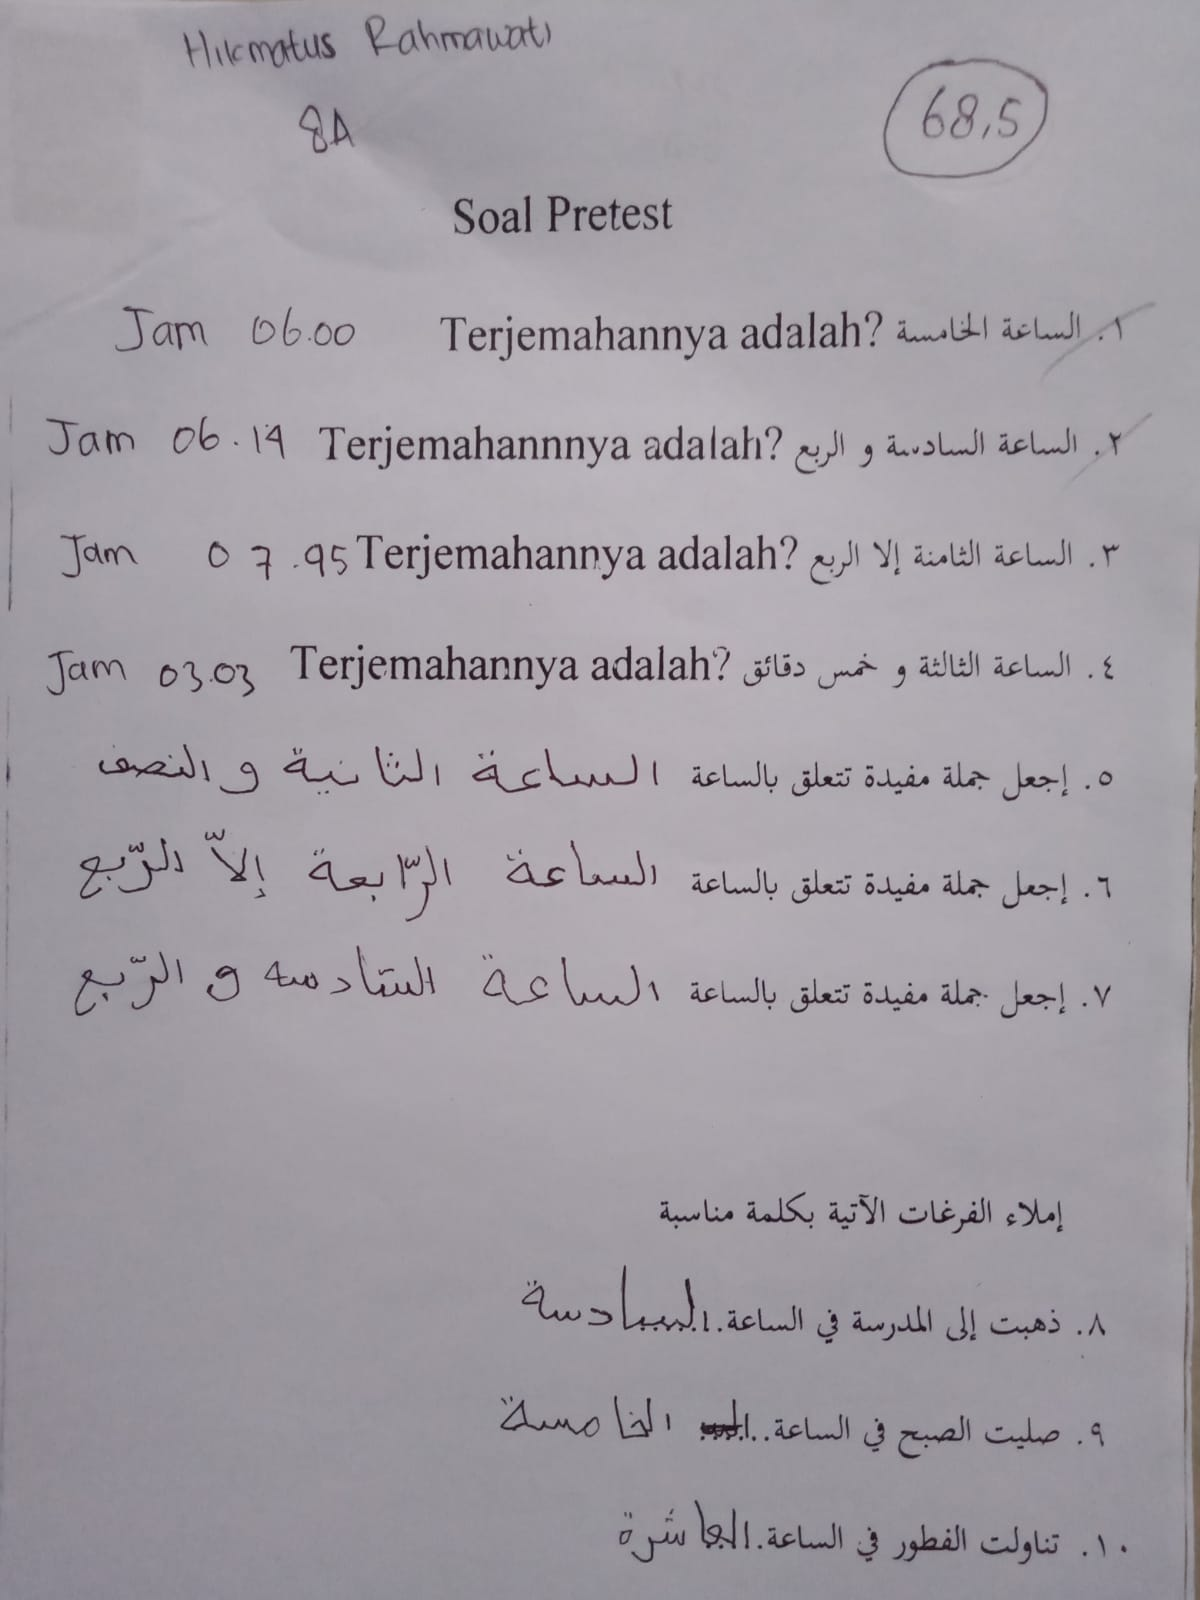 Hikmatus Rahmawati
8A
68,5
Soal Pretest
١. الساعة الخامسة Terjemahannya adalah? Jam 06.00
٢. الساعة السادسة و الربع Terjemahannnya adalah? Jam 06.14
٣. الساعة الثامنة إلا الربع Terjemahannya adalah? Jam 07.45
٤. الساعة الثالثة و خمس دقائق Terjemahannya adalah? Jam 03.03
٥. إجعل جملة مفيدة تتعلق بالساعة الساعة الثانية و النصف
٦. إجعل جملة مفيدة تتعلق بالساعة الساعة الرّابعة إلاّ الرّبع
٧. إجعل جملة مفيدة تتعلق بالساعة الساعة السّادسه و الرّبع
إملاء الفرغات الآتية بكلمة مناسبة
٨. ذهبت إلى المدرسة في الساعة..السادسة
٩. صليت الصبح في الساعة... الخامسة
١٠. تناولت الفطور في الساعة..العاشرة